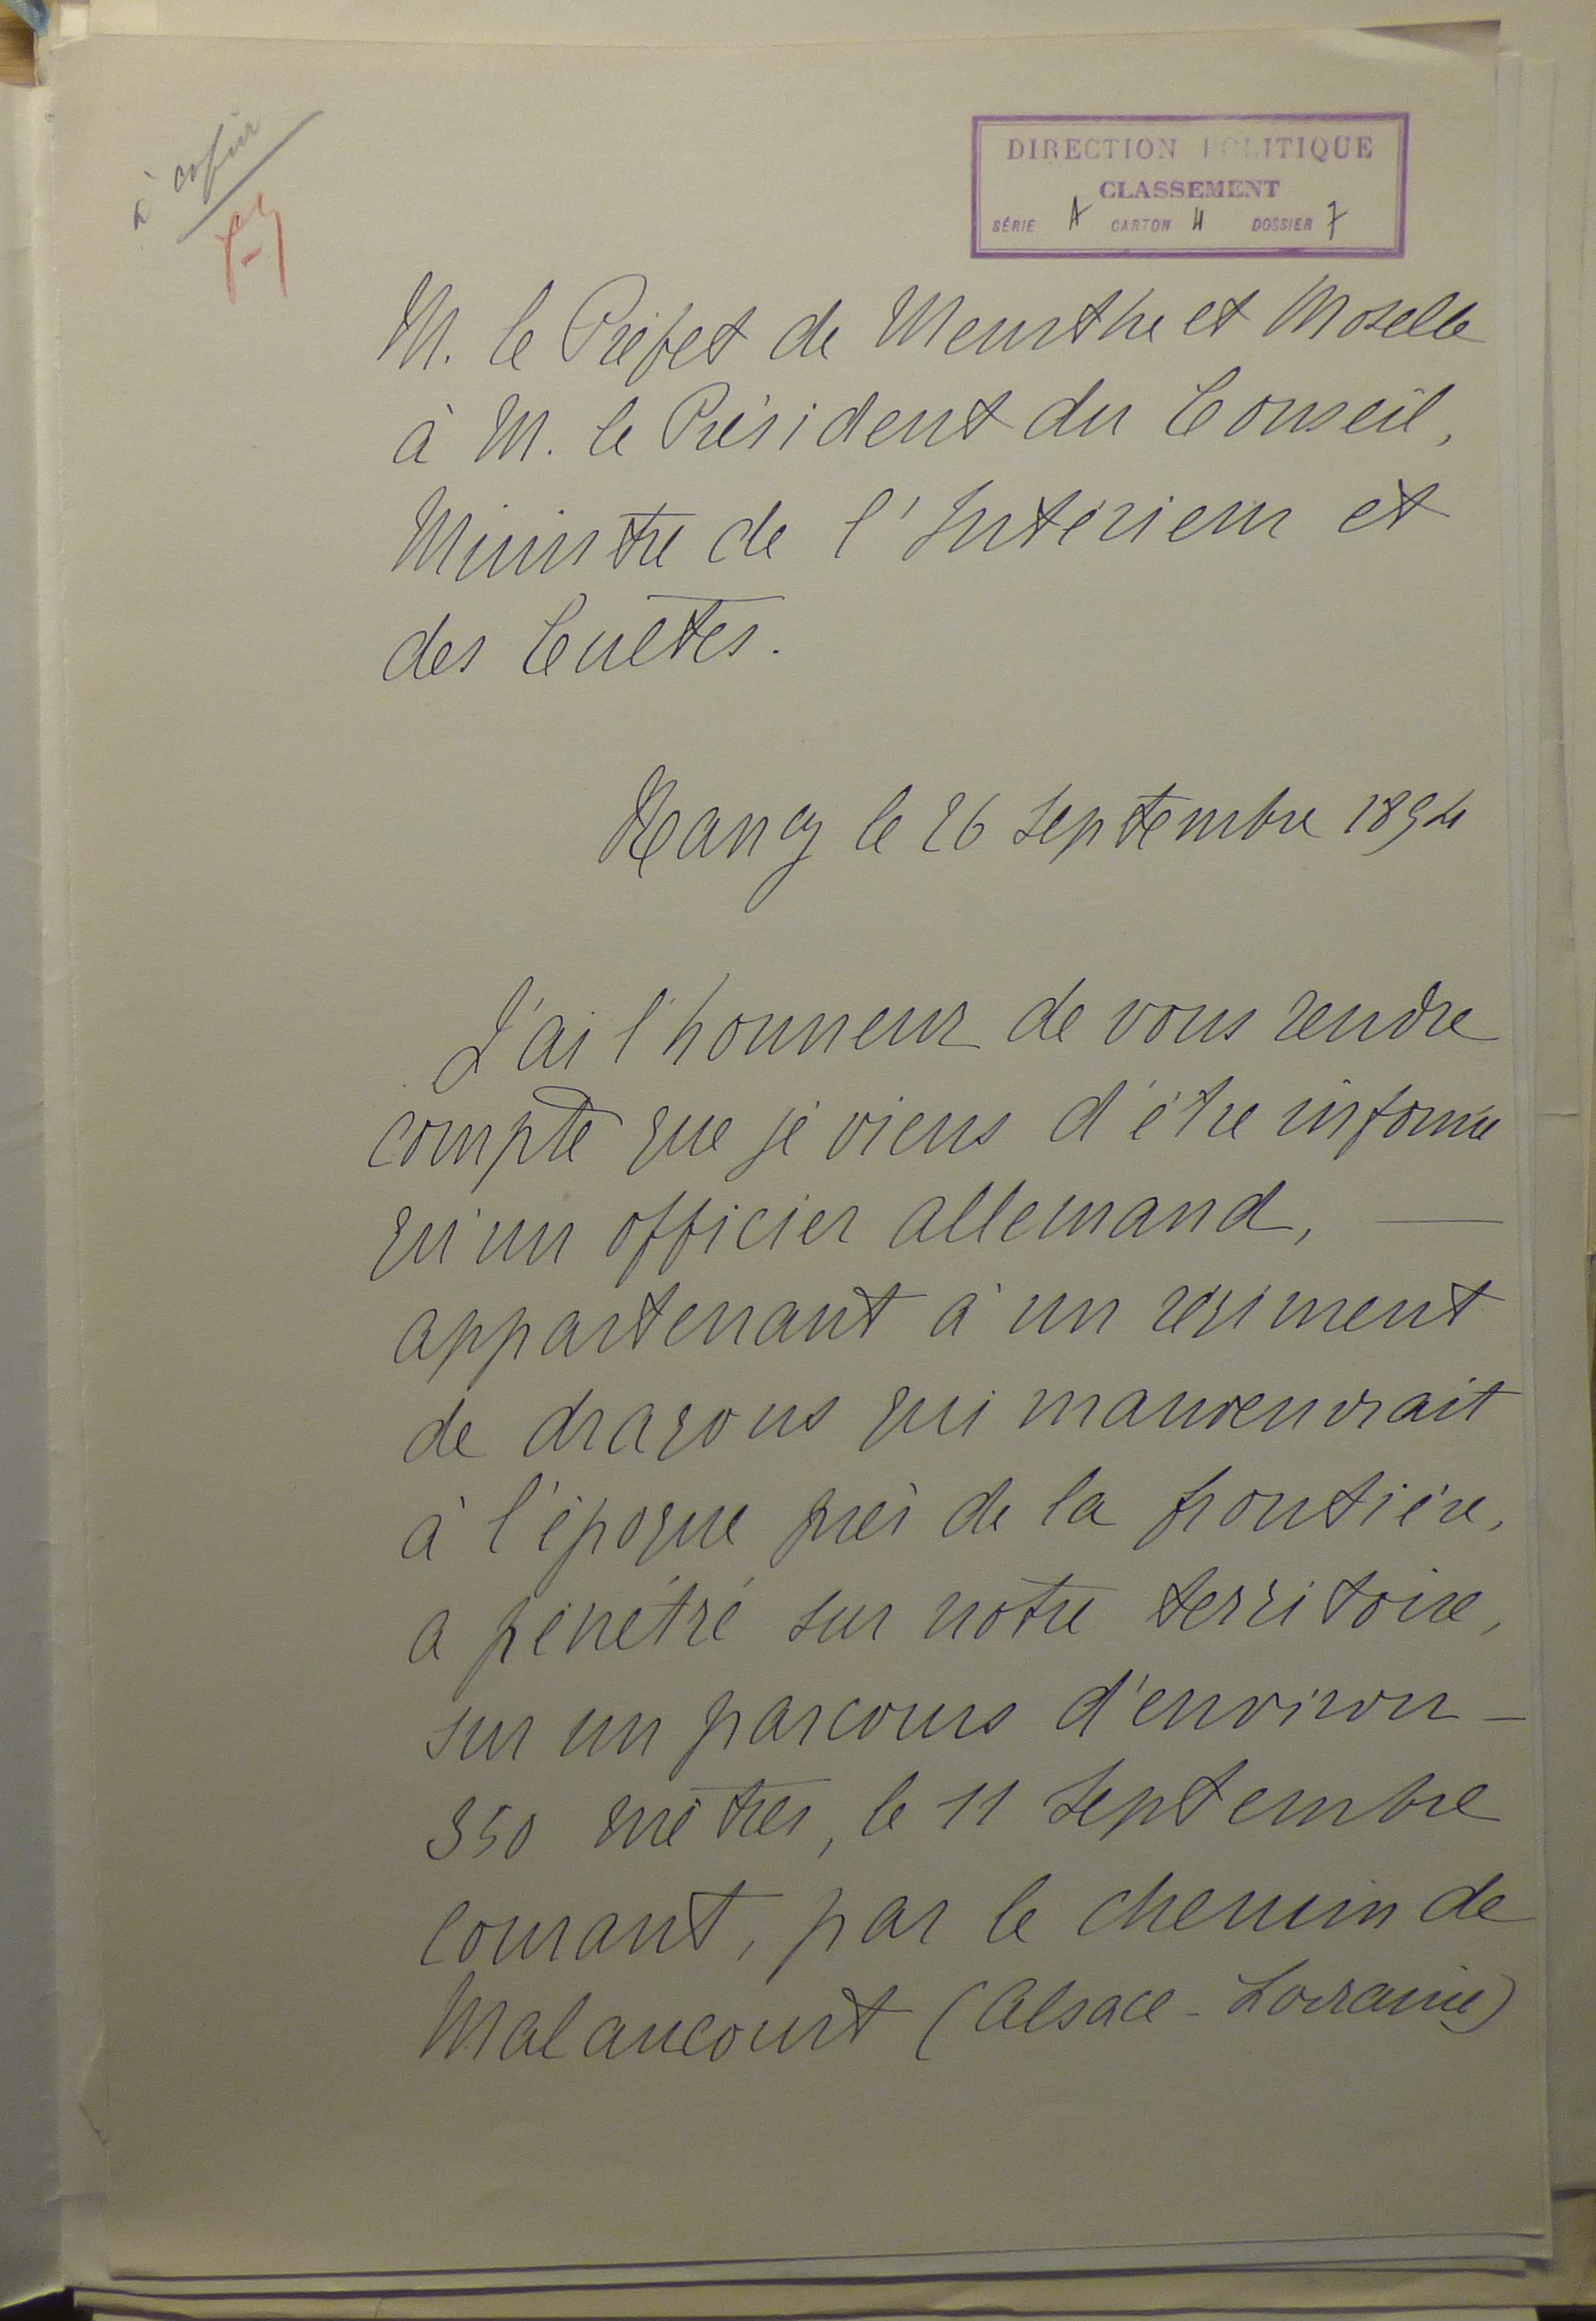 à copier
DIRECTION POLITIQUE
CLASSEMENT
SÉRIE A CARTON 4 DOSSIER 7
M. le Préfet de Meurthe et Moselle
à M. le Président du Conseil,
Ministre de l'Intérieur et
des Cultes.
Nancy le 26 septembre 1894
J'ai l'honneur de vous rendre
compte que je viens d'être informé
qu'un officier allemand, —
appartenant à un régiment
de dragons qui manœuvrait
à l'époque près de la frontière,
a pénétré sur notre territoire,
sur un parcours d'environ —
350 mètres, le 11 septembre
courant, par le chemin de
Malancourt (Alsace-Lorraine)